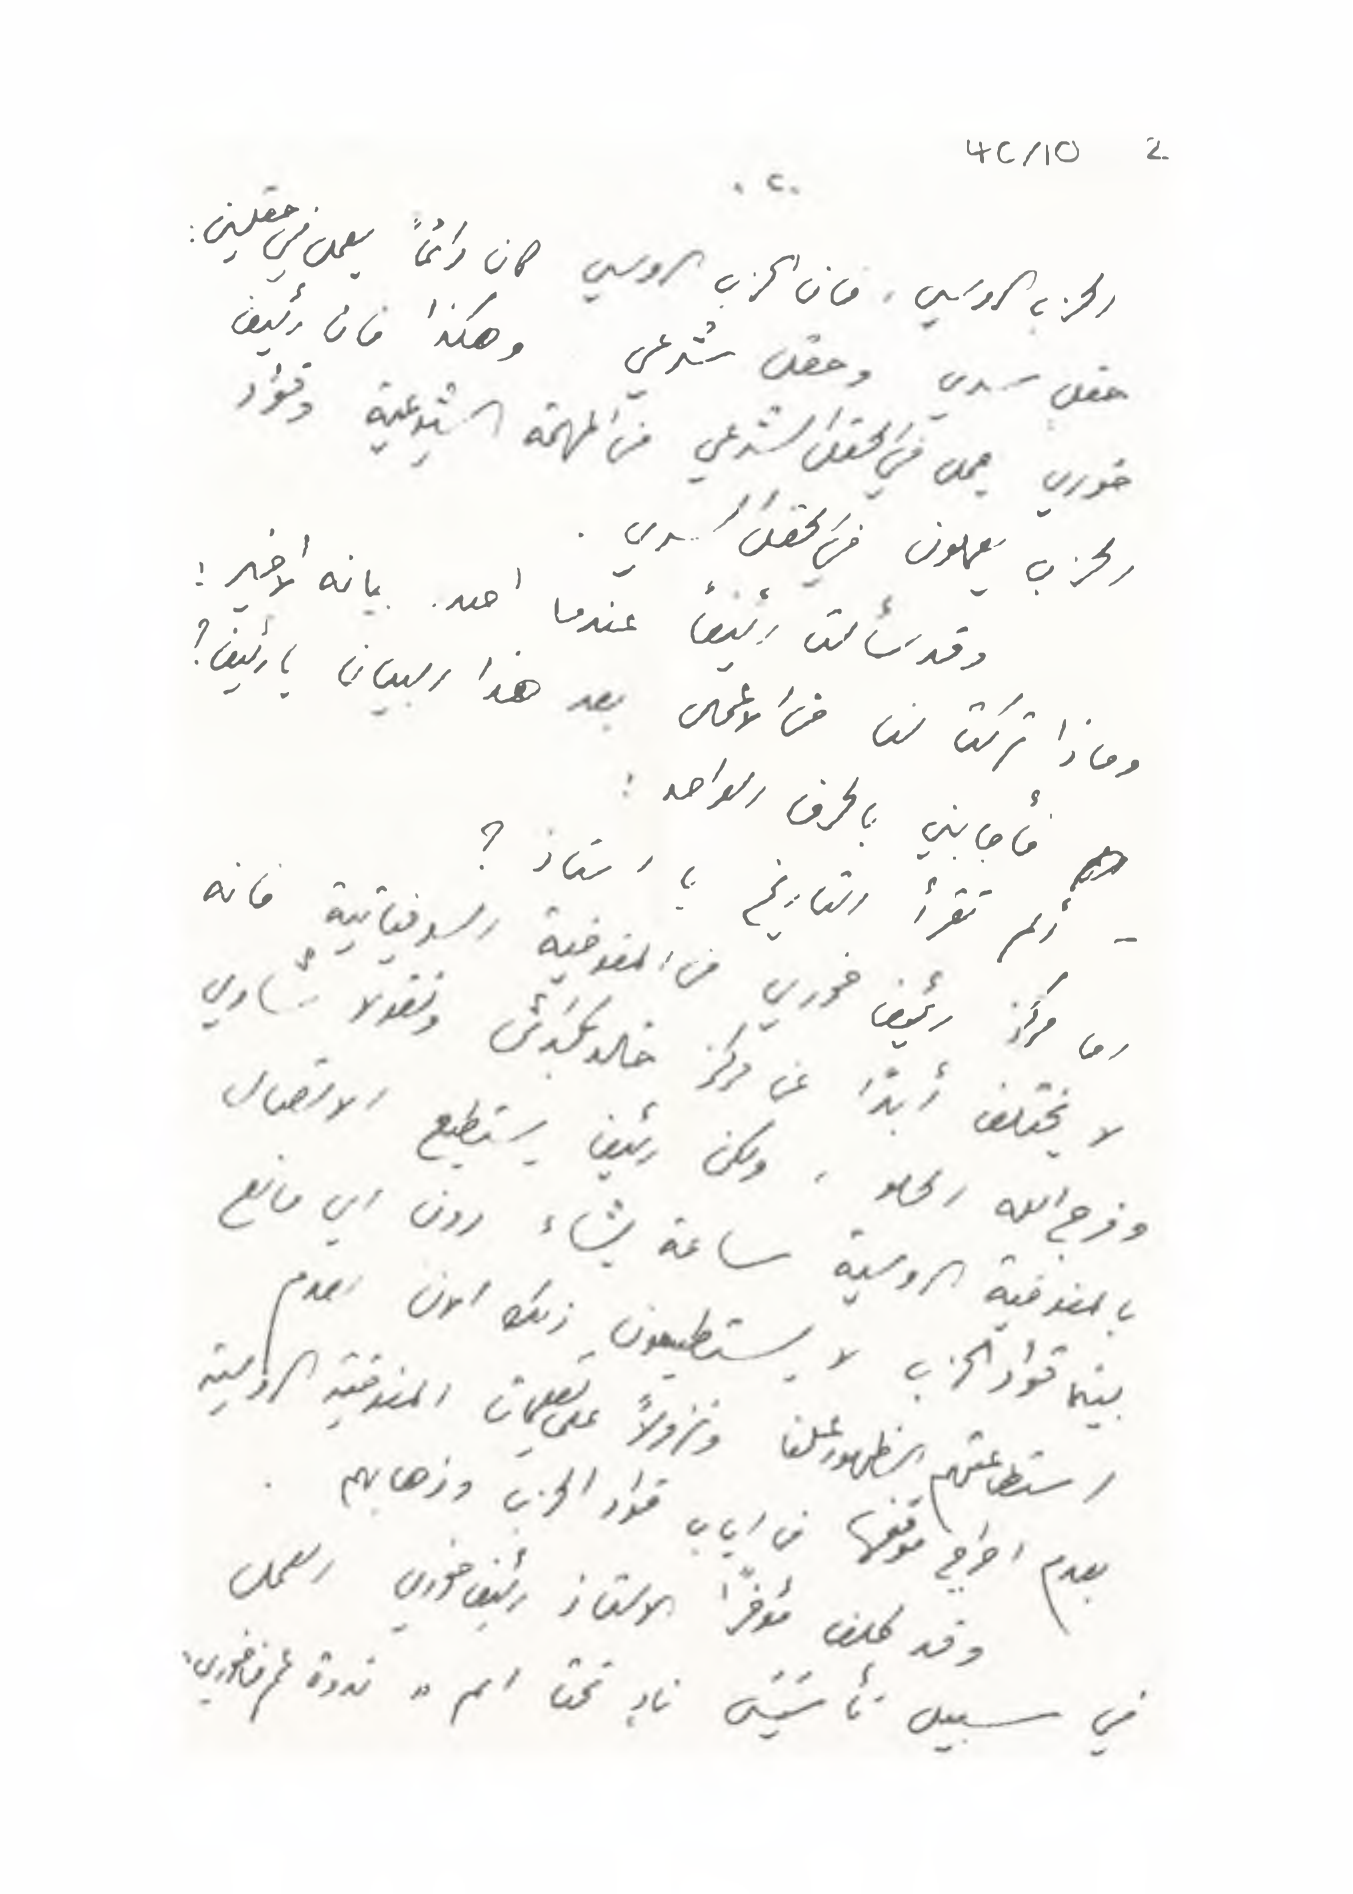 4C/10 2
.٢.
الحزب الروسي ، فان الحزب الروسي كان دائماً يعمل في حقلين :
حقل سري وحقل شرعي وهكذا فان رئيف
خوري يعمل في الحقل الشرعي في المهمة الشيوعية وقواد
الحزب يعملون في الحقل السري .
وقد سألت رئيفاً عندما اصدر بيانه الاخير :
وماذا تركت لنا من الاعمال بعد هذا البيان يا رئيف ؟
فأجابني بالحرف الواحد :
- ألم تقرأ التاريخ يا استاذ ؟
اما مركز رئيف خوري في المفوضية السوفياتية فانه
لا يختلف أبداً عن مركز خالد بكداش ونقولا شاوي
وفرج الله الحلو ، ولكن رئيف يستطيع الاتصال
بالمفوضية الروسية ساعة يشاء دون اي مانع
بينما قواد الحزب لا يستطيعون ذلك الان لعدم
استطاعتهم الظهور علنا ونزولاً على تعليمات المفوضية الروسية
بعدم احراج موقفها في اياب قواد الحزب وذهابهم .
وقد كلف مؤخراً الاستاذ رئيف خوري العمل
في سبيل تأسيس نادٍ تحت اسم « ندوة عمر فاخوري »